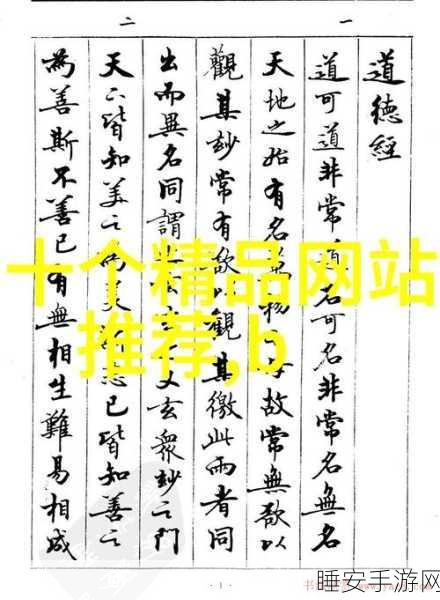 一
二
道德經
道可道非常道名可名非常名無名
天地之始有名萬物母故常無欲以
觀其妙常有欲以觀其徼此兩者同
出而異名同謂之玄又玄衆妙之門
天下皆知美之為美惡已皆知善之
為善斯不善已有無相生難易相成
十个精品网站
推荐,b
睡安手游网